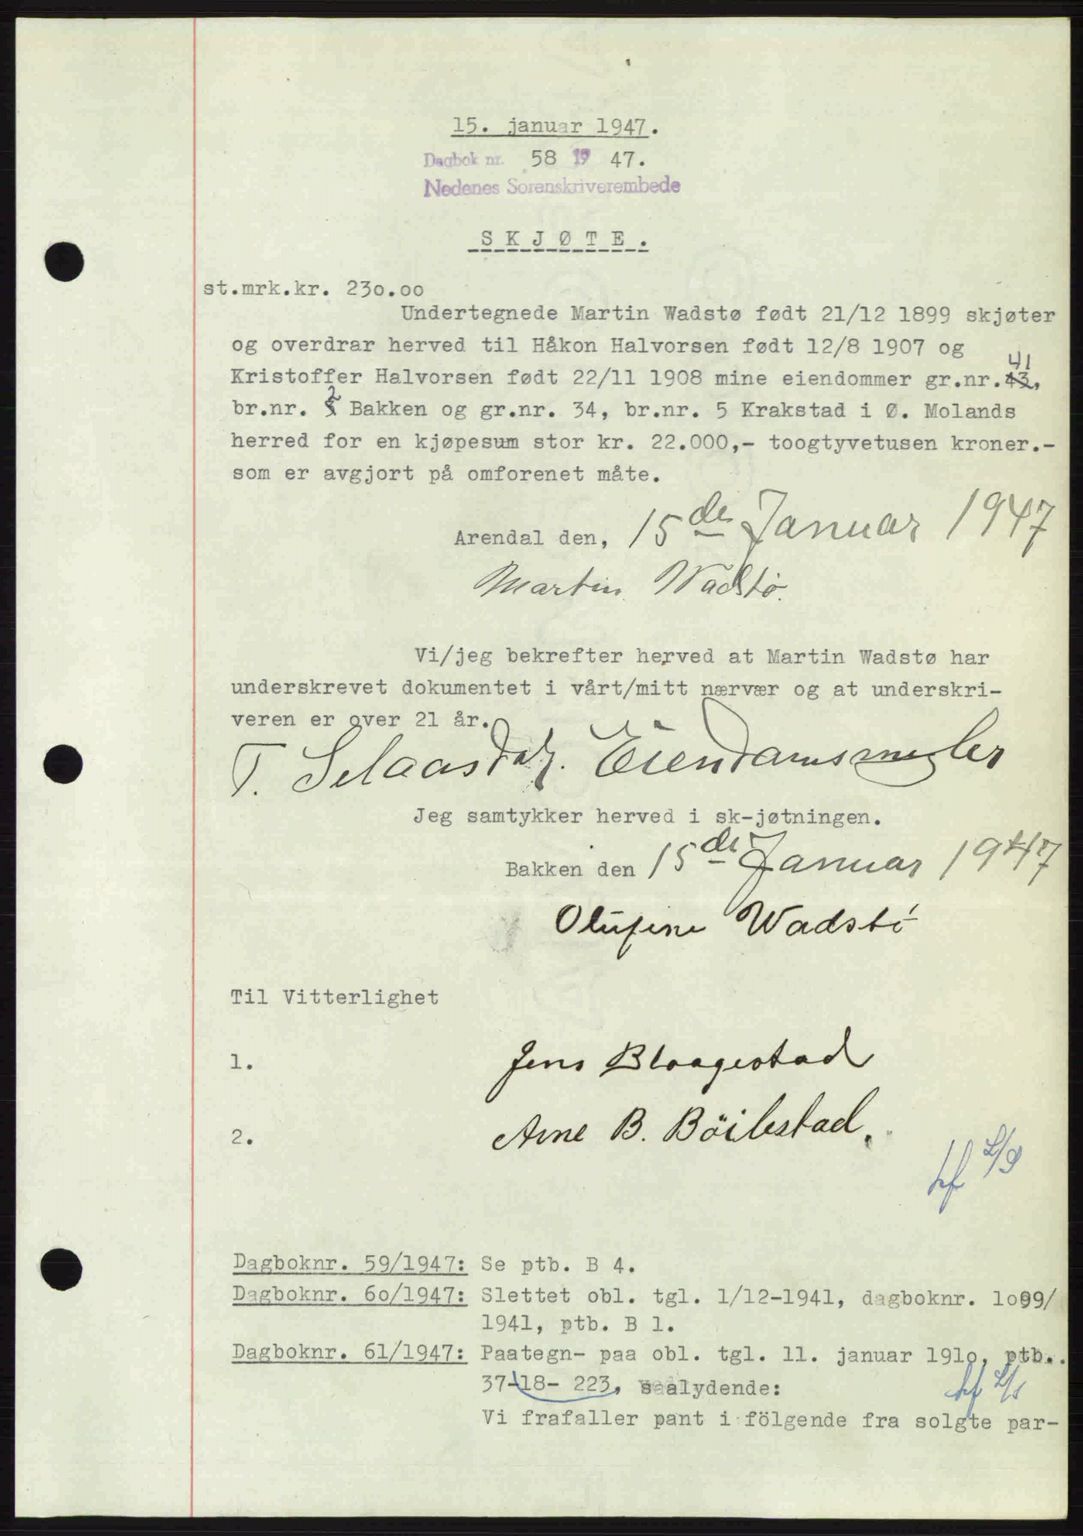 15. januar 1947.
Dagbok nr. 58 19 47.
Nedenes Sorenskriverembede
S K J Ø T E .
st.mrk.kr. 230.00
Undertegnede Martin Wadstø født 21/12 1899 skjøter
og overdrar herved til Håkon Halvorsen født 12/8 1907 og
41
Kristoffer Halvorsen født 22/11 1908 mine eiendommer gr.nr.43,
br.nr. 2 Bakken og gr.nr. 34, br.nr. 5 Krakstad i Ø. Molands
herred for en kjøpesum stor kr. 22.000,- toogtyvetusen kroner.-
som er avgjort på omforenet måte.
Arendal den, 15de Januar 1947
Martin Wadstø.
Vi/jeg bekrefter herved at Martin Wadstø har
underskrevet dokumentet i vårt/mitt nærvær og at underskri-
veren er over 21 år.
T. Selaasdal. Eiendomsmegler
Jeg samtykker herved i sk-jøtningen.
Bakken den 15de Januar 1947
Olufine Wadstø
Til Vitterlighet
1. Jens Blaagestad
2. Arne B. Böilestad.
Dagboknr. 59/1947: Se ptb. B 4.
Dagboknr. 60/1947: Slettet obl. tgl. 1/12-1941, dagboknr. 1099/
1941, ptb. B 1.
Dagboknr. 61/1947: Paategn- paa obl. tgl. 11. januar 1910, ptb..
37-18- 223, saalydende:
Vi frafaller pant i fölgende fra solgte par-